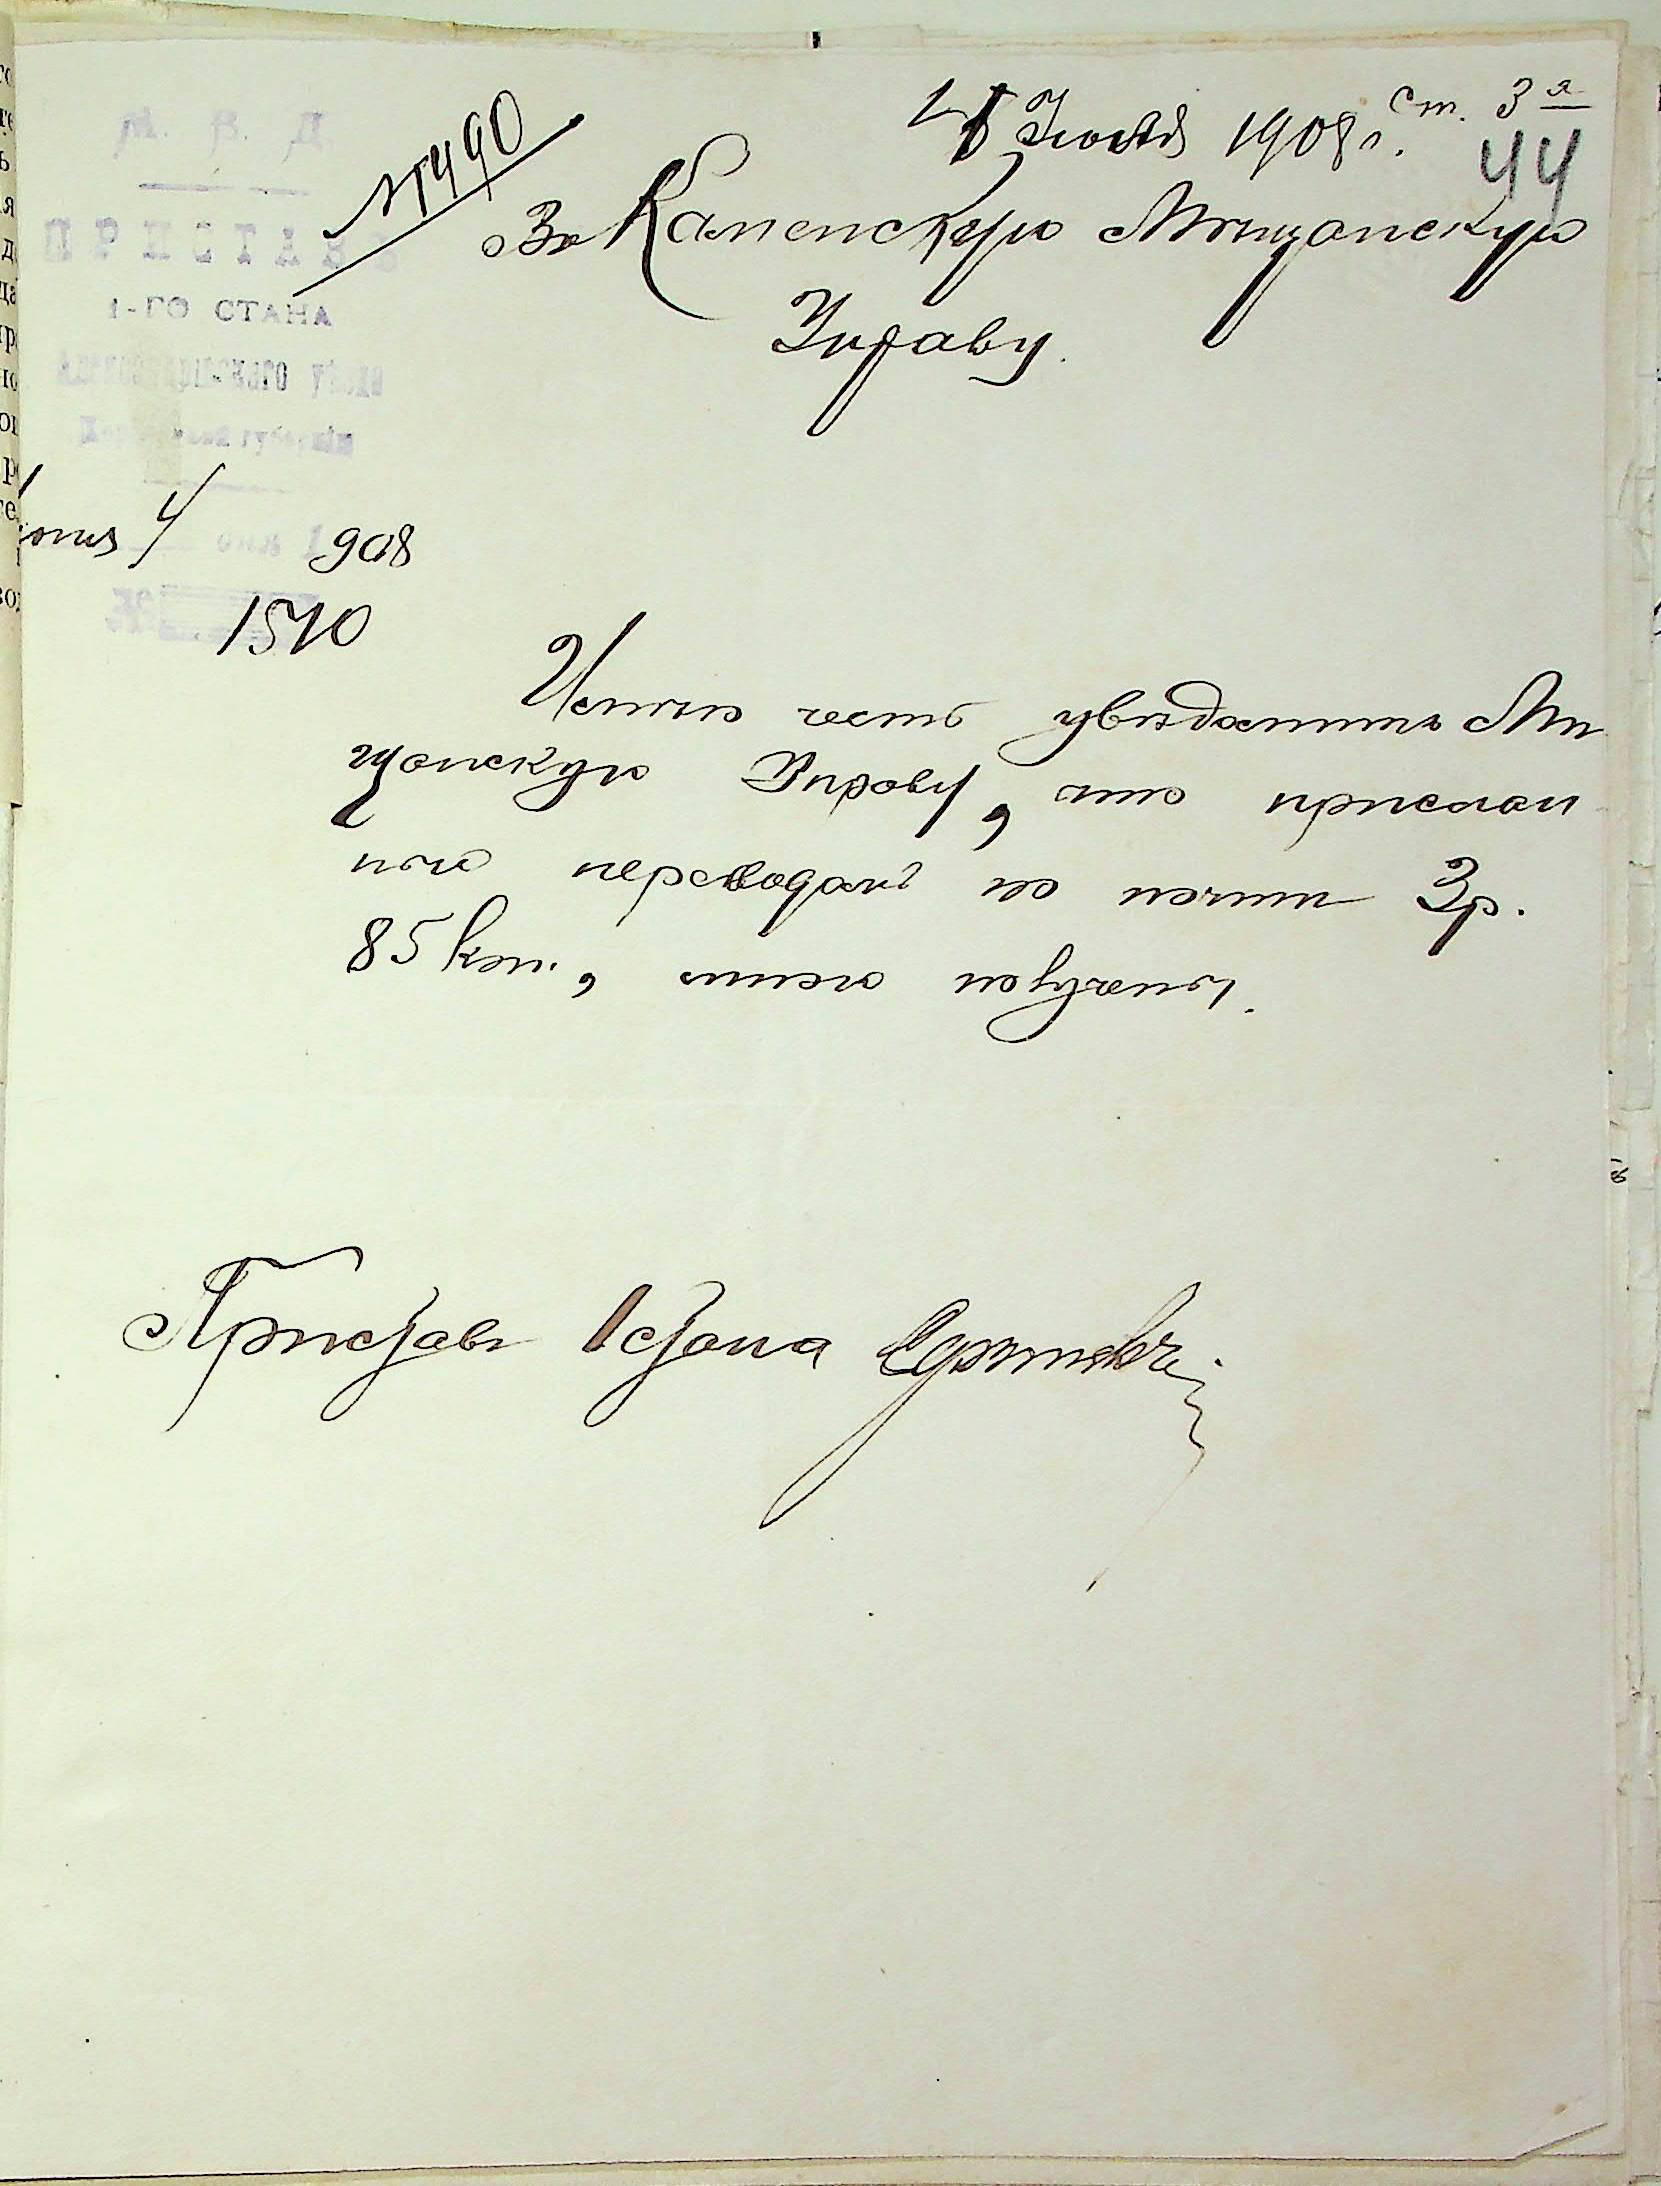 М. В. Д.
ПРИСТАВЪ
1-ГО СТАНА
уѣзда
губерніи
4 908
1510
№490
1908 г. ст. 3я
44
Въ Каменскую Мѣщанскую
Управу.
Имѣю честь увѣдомить Мѣ
щанскую Управу, что прислан
ные переводомъ по почтѣ 3 р.
85 коп., мною получены.
Приставъ 1 стана